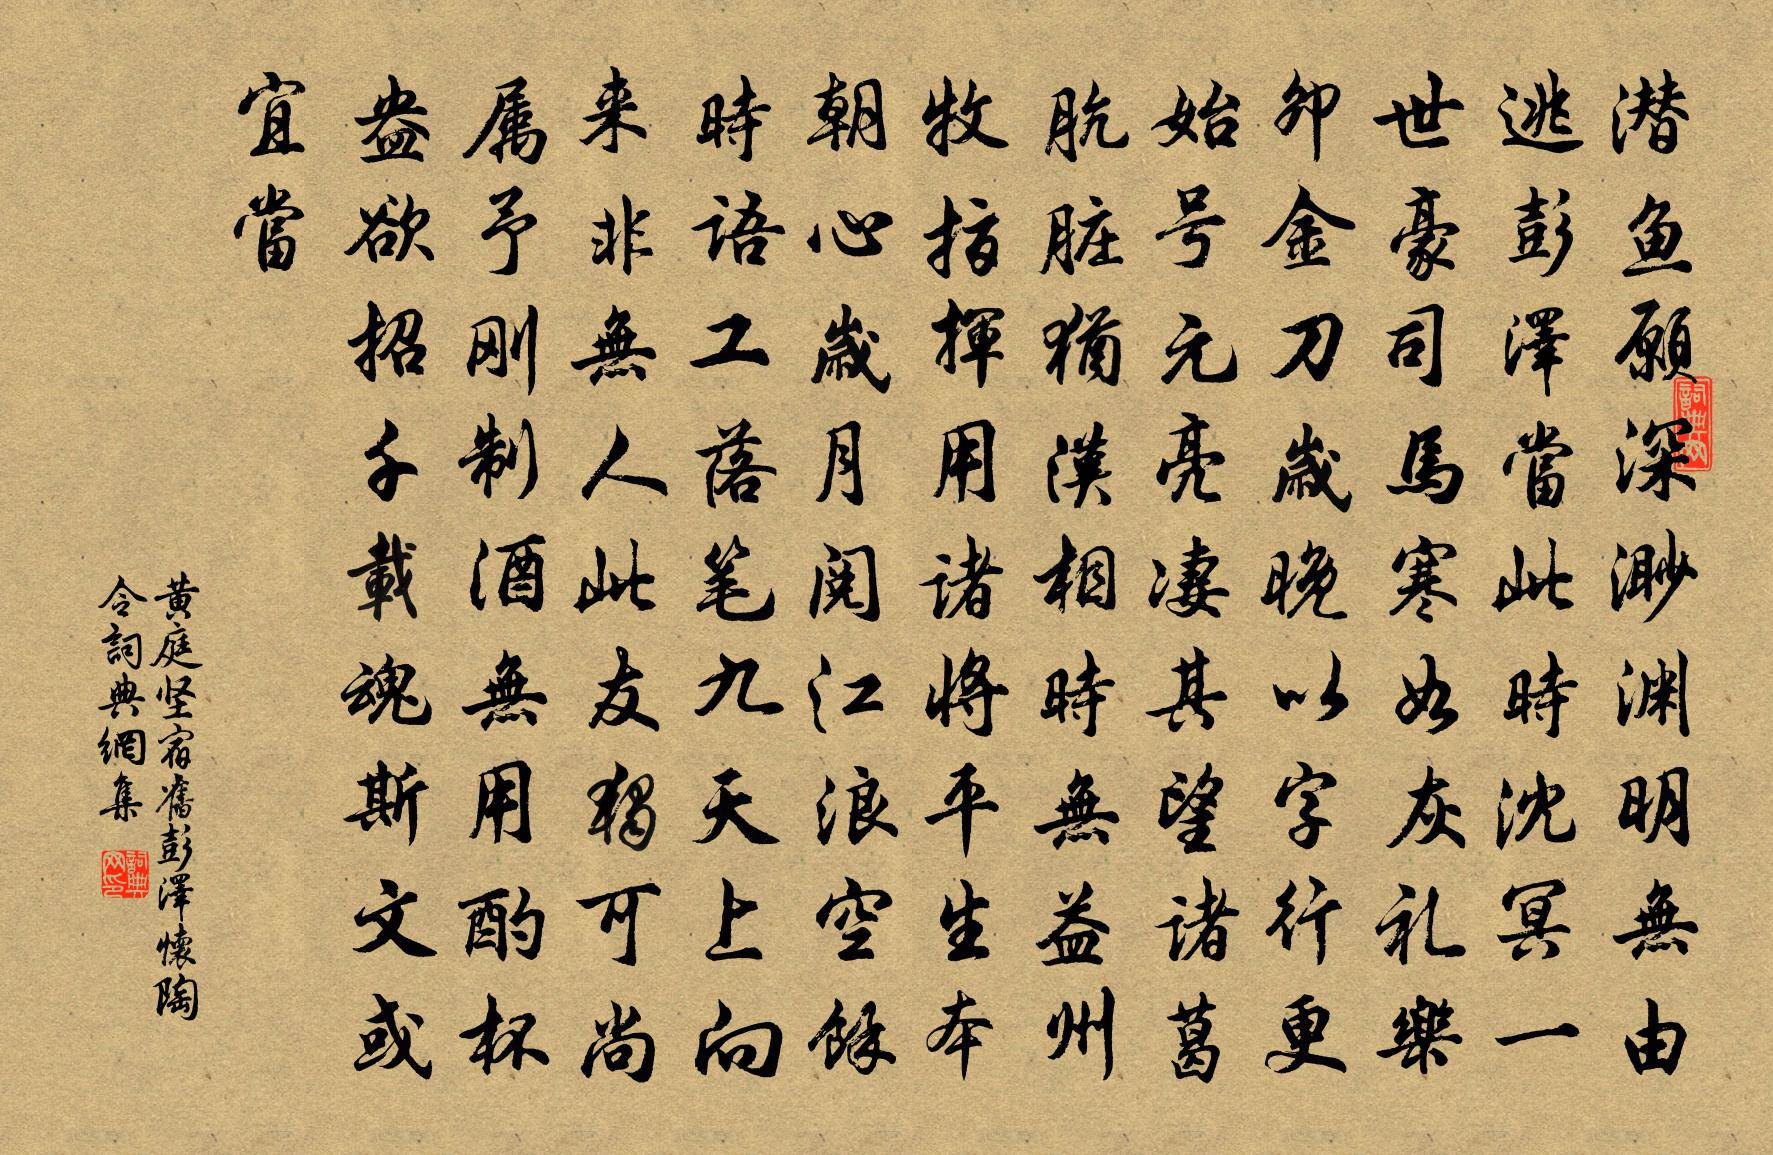 潜鱼願深渺渊明無由
逃彭澤當此時沈冥一
世豪司馬寒如灰礼樂
卯金刀歲晚以字行更
始号元亮凄其望諸葛
肮脏猶漢相時無益州
牧指揮用諸将平生本
朝心歲月閱江浪空餘
時語工落笔九天上向
来非無人此友獨可尚
属予刚制酒無用酌杯
盎欲招千載魂斯文或
宜當
黄庭坚宿舊彭澤懷陶
令詞典網集
詞典网
詞典网印